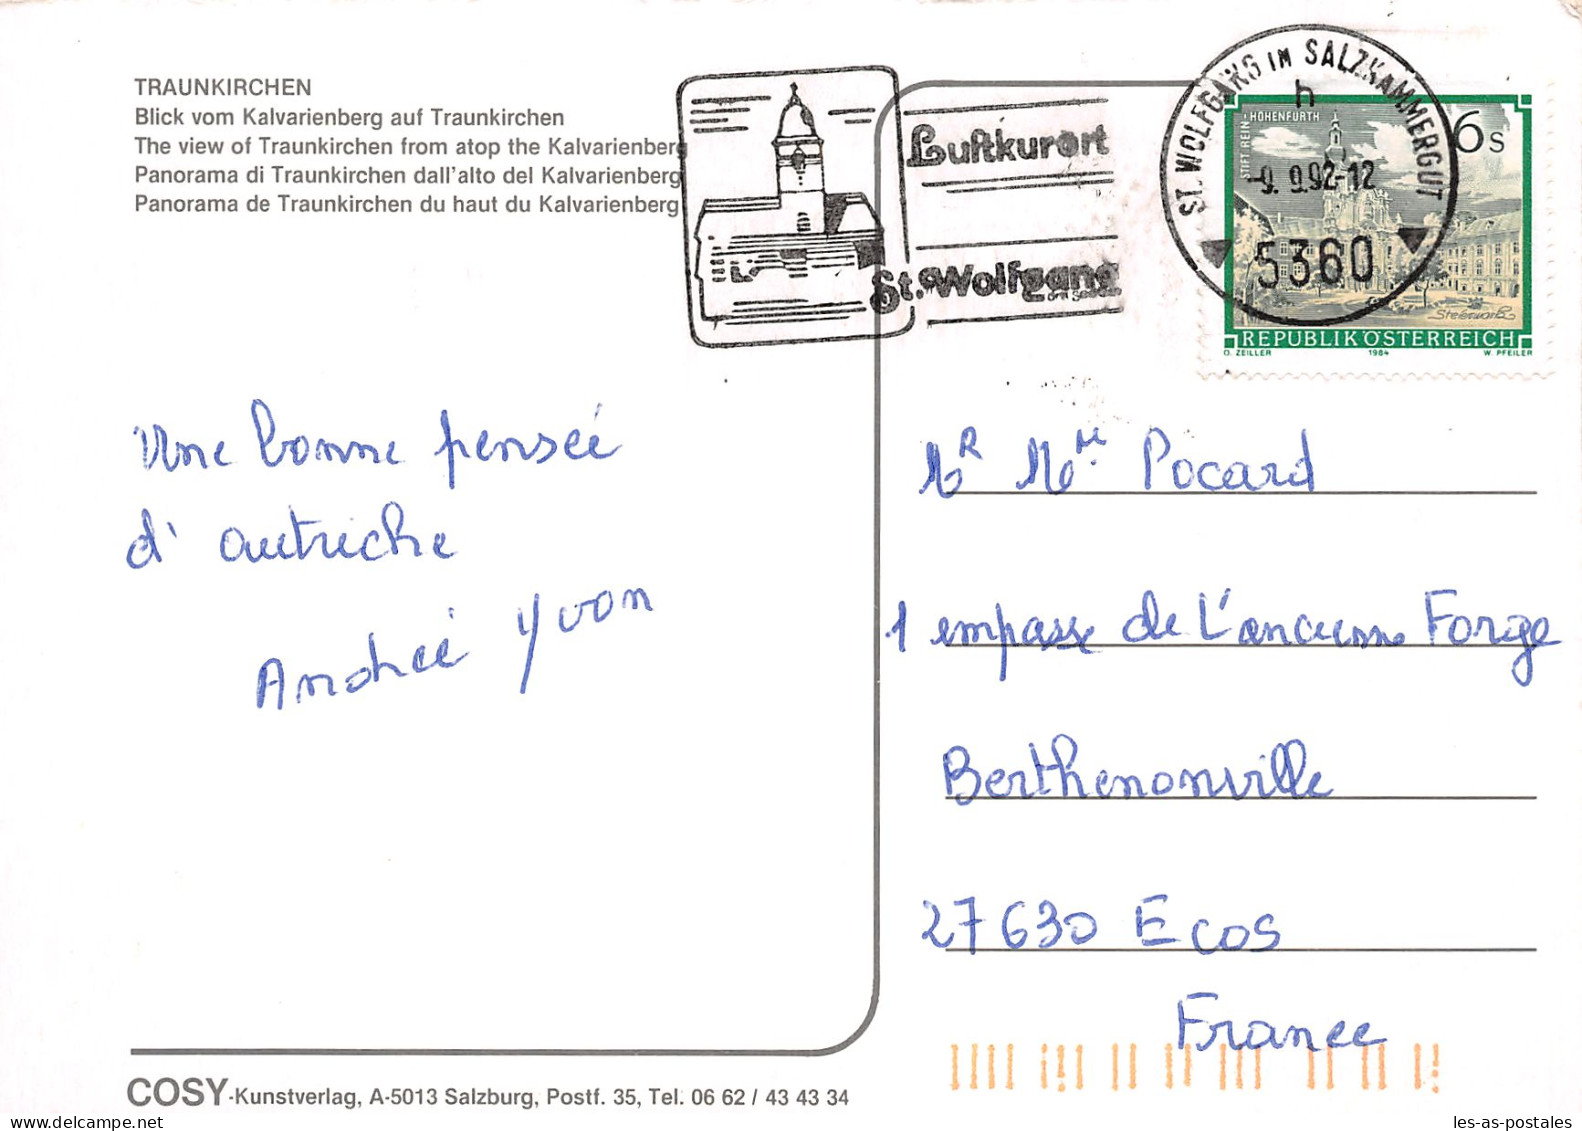 TRAUNKIRCHEN
Blick vom Kalvarienberg auf Traunkirchen
The view of Traunkirchen from atop the Kalvarienberg
Panorama di Traunkirchen dall'alto del Kalvarienberg
Panorama de Traunkirchen du haut du Kalvarienberg
Luftkurort
St. Wolfgang
ST. WOLFGANG IM SALZKAMMERGUT
h
-9. 9.92-12
5360
STIFT REIN-HOHENFURTH
6s
REPUBLIK ÖSTERREICH
O. ZEILLER 1984 W. PFEILER
Une bonne penseé
d' autriche
Andreé Yvon
MR Mme Pocard
1 empasse de L'ancienne Forge
Berthenonville
27630 Ecos
France
COSY-Kunstverlag, A-5013 Salzburg, Postf. 35, Tel. 06 62 / 43 43 34
les-as-postales